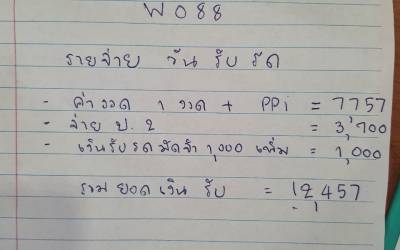 W088
รายจ่าย วันรับรถ
- ค่างวด 1 งวด + PPI = 7757
- จ่าย ป.2 = 3,700
- เงินรับรถมัดจำ 1,000 เพิ่ม = 1,000
รวมยอดเงินรับ = 12,457